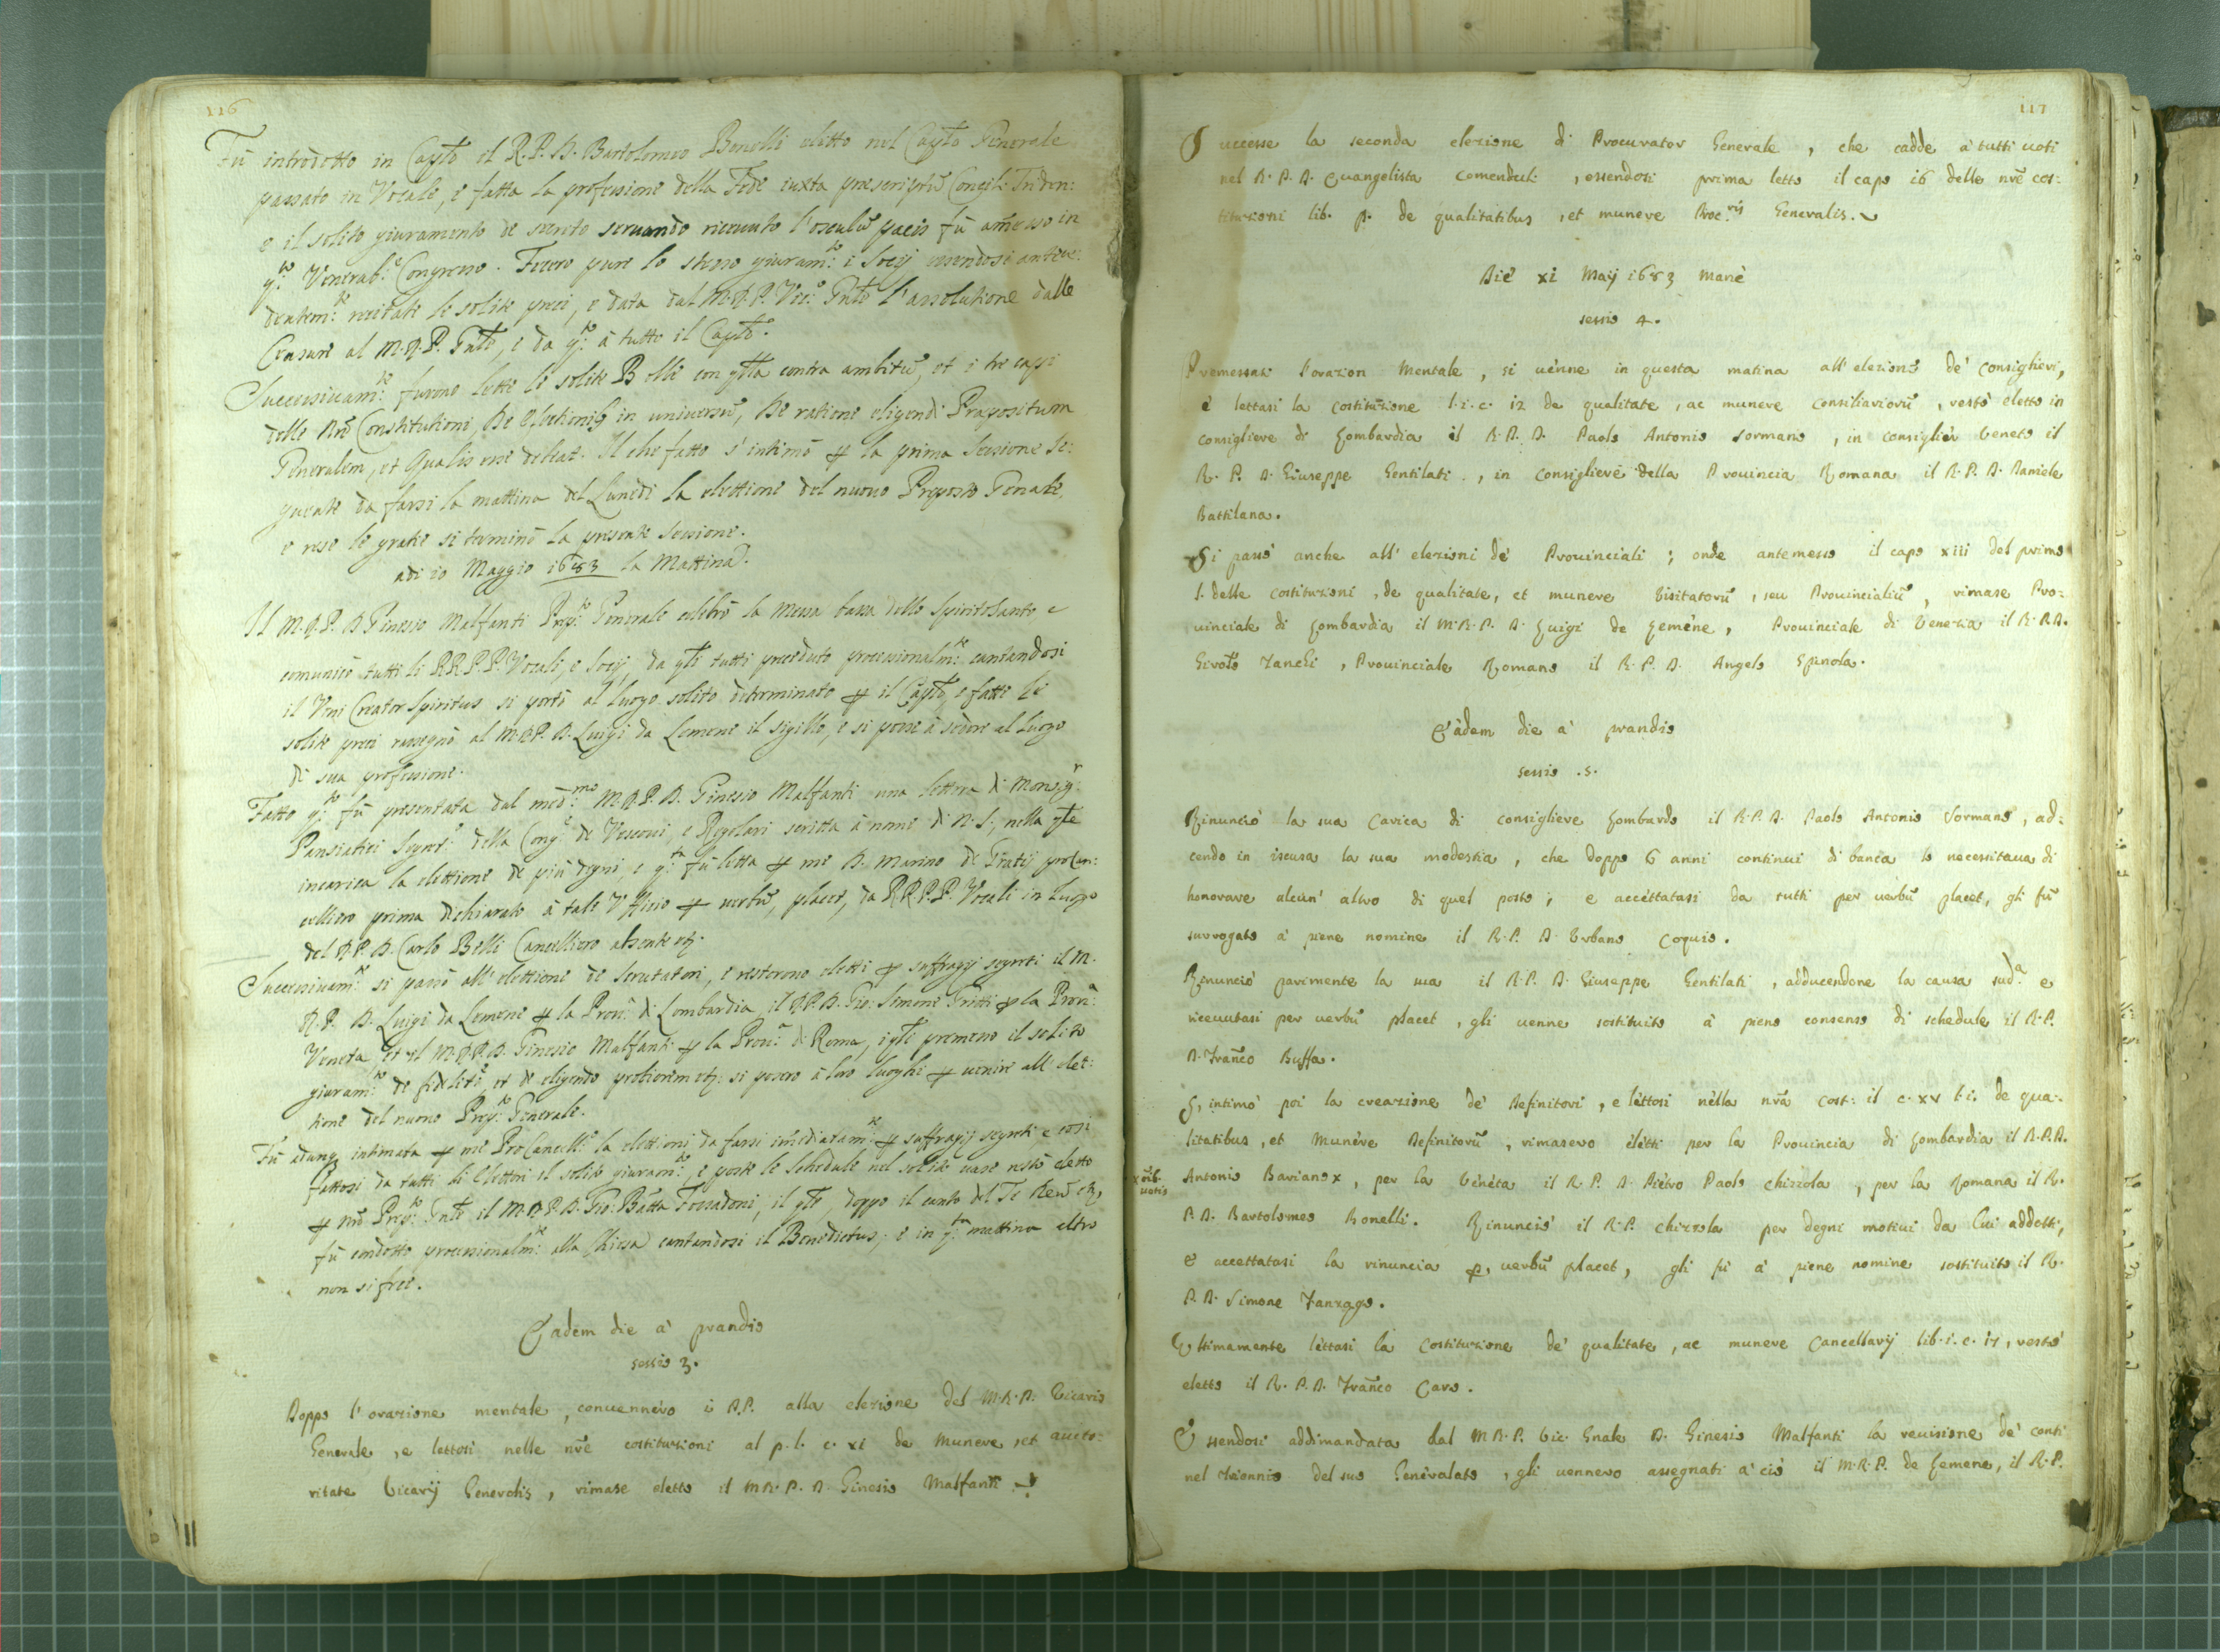 116
Fù introdotto in Capto il R. P. D. Bartolomeo Bonelli eletto nel Capto Generale
passato in Vocale, e fatta la professione della Fede iuxta prescriptū Concil: Triden:
e il solito giuramento de secreto servando riceuuto l'osculū pacis fù am̄esso in
q.to Venerab:e Congresso. Fecero pure lo stesso giuram:to i Socij essendosi antece:
dentem:te recitate le solite preci, e data dal M.R.P. Vic:o Gñle l'assolutione dalle
Censure al M.R.P. Gñle, e da q:to à tutto il Capto.
Successiuam:te furono lette le solite Bolle con qlla contra ambitū, et i tre capi
delle nr̄e Constitutioni, De Electionib9 in universū, De ratione eligendi Prepositum
Generalem, et Qualis esse debeat. Il che fatto s'intimò p la prima Sessione se:
guente da farsi la mattina del Lunedì la elettione del nuouo Preposto Genale,
e rese le gratie si terminò la presente sessione.
adi 10 Maggio 1683 la Mattina.
Il M.R.P. D Ginesio Malfanti Prep:to Generale celebrò la Messa bassa dello Spirito Santo e
comunicò tutti li RR.PP. Vocali, e Socij, da qli tutti preceduto processionalm:te cantandosi
il Veni Creator Spiritus si portò al luogo solito determinato p il Capto, e fatte le
solite preci rassegnò al M.R.P. D. Luigi da Lemene il sigillo, e si pose à sedere al luogo
di sua professione.
Fatto q:to fù presentata dal med:mo M.R.P. D. Ginesio Malfanti una lettera di Monsig:r
Pansiatici Segret:o della Cong:e de Vescoui, e Regolari scritta à nome di N. S., nella qle
incarica la elettione de più degni, e q:ta fù letta p me D. Marino de Gratij procan:
celliero prima dichiarato à tale Vffitio p verbū, placet, da RR.PP. Vocali in luogo
del R.P. D. Carlo Belli Cancelliero absente etz.
Successiuam:te si passò all'elettione de Scrutatori, e restorono eletti p suffragij segreti il M.
R.P. D. Luigi da Lemene p la Prou:a di Lombardia, il R.P.D. Gio: Simone Gritti p la Prou:a
Veneta et il M.R.P.D. Ginesio Malfanti p la Prou:a di Roma, i qli premesso il solito
giuram:to de fidelità, et de eligendo potiorem etz. si posero à loro luoghi p uenire all elet:
tione del nuouo Prep:to Generale.
Fù adunq intimata p me ProCancell:o la elettione da farsi im̄ediatam:te p suffragij segreti e così
fattosi da tutti li Elettori il solito giuram:to, e poste le schedule nel solito uaso restò eletto
p nr̄o Prep:to Gñle il M.R.P.D. Gio: Batta Fossadoni, il qle, doppo il canto del Te Deū etz,
fù condotto processionalm:te alla Chiesa cantandosi il Benedictus; e in q:ta mattina altro
non si fece.
Eadem die à prandio
sessio 3.
Doppo l'orazione mentale, conuennero i P.P. alla elezione del M.R.P. Vicario
Generale, e lettosi nelle nr̄e costituzioni al p. l. c. xi de munere, et aucto:
ritate Vicarij Generalis, rimase eletto il M.R.P. D. Ginesio Malfanti
117
Successe la seconda elezione di Procurator Generale, che cadde à tutti uoti
nel R. P. D. Euangelista Comenduli, essendosi prima letto il capo 16 delle nr̄e cos:
tituzioni lib. p. de qualitatibus, et munere Proc.ris Generalis.
Die xi Maij 1683 manè
sessio 4.
Premessasi l'orazion mentale, si uenne in questa matina all'elezione de' Consiglieri,
e lettasi la costituzione l. i. c. 12 de qualitate, ac munere consiliariorū, restò eletto in
consigliere di Lombardia il R. P. D. Paolo Antonio Sormano, in consiglier Veneto il
R. P. D. Giuseppe Gentilati, in consigliere della Prouincia Romana il R. P. D. Daniele
Battilana.
Si passò anche all'elezioni de' Prouinciali; onde antemesso il capo xiii del primo
l. delle costituzioni, de qualitate, et munere Visitatorū, seu Prouincialiū, rimase Pro:
uinciale di Lombardia il M. R. P. D. Luigi de Lemene, Prouinciale di Venezia il R. P. D.
Girol:o Zanchi, Prouinciale Romano il R. P. D. Angelo Spinola.
Eadem die à prandio
sessio .5.
Rinunciò la sua carica di consigliere Lombardo il R. P. D. Paolo Antonio Sormano, ad:
cendo in iscusa la sua modestia, che doppo 6 anni continui di banca lo necessitaua di
honorare alcun' altro di quel posto; e accettatasi da tutti per uerbū placet, gli fù
surrogato à pieno nomine il R. P. D. Vrbano Coquio.
Rinunciò parimente la sua il R. P. D. Giuseppe Gentilati, adducendone la causa sud.a e
riceuutasi per uerbū placet, gli uenne sostituito à pieno consenso di schedule il R. P.
D. Franco Buffa.
S'intimò poi la creazione de' Definitori, e lettosi nella nr̄a Cost: il c. xv l. i. de qua:
litatibus, et munere Definitorū, rimasero eletti per la Prouincia di Lombardia il R. P. D.
x oib.
uotis
Antonio Bariano x, per la Veneta il R. P. D. Pietro Paolo Chizzola, per la Romana il R.
P. D. Bartolomeo Bonelli. Rinunciò il R. P. Chizzola per degni motiui da lui addotti,
e accettatasi la rinuncia p. uerbū placet, gli fù à pieno nomine sostituito il R.
P. D. Simone Zanzago.
Vltimamente lettasi la costituzione de' qualitate, ac munere Cancellarij lib. i. c. 17, restò
eletto il R. P. D. Franco Caro.
Essendosi addimandata dal M R. P. Vic. Gnale D. Ginesio Malfanti la reuisione de' conti
nel trionnio del suo Generalato, gli uennero assegnati a' ciò il M. R. P. de Lemene, il R. P.